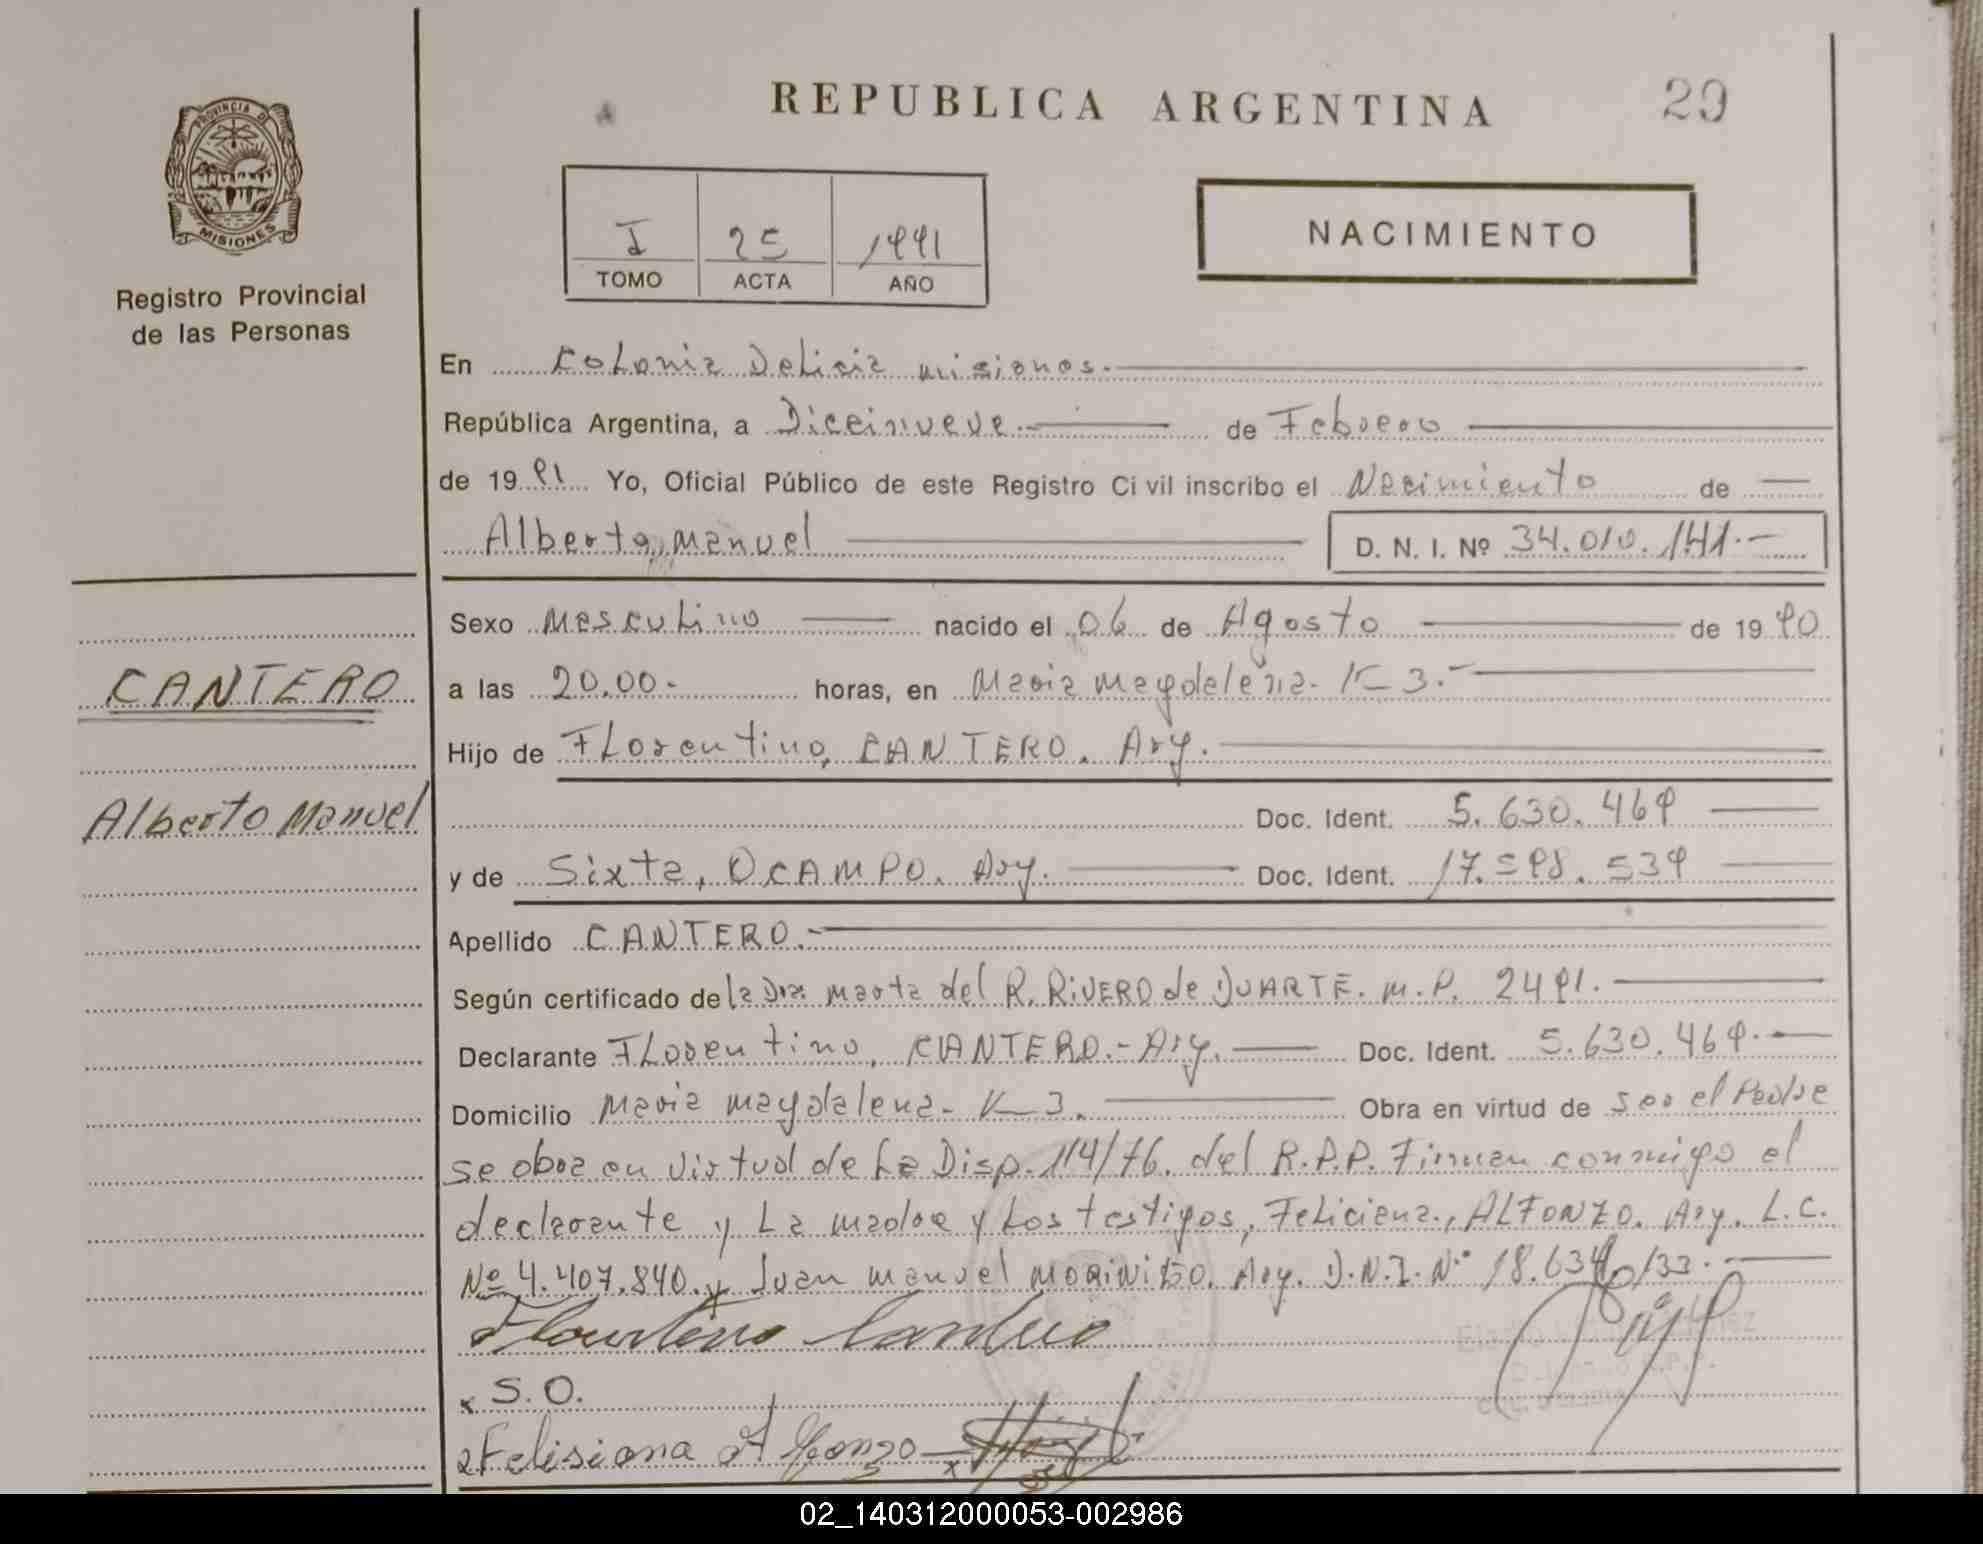 REPUBLICA ARGENTINA
29
PROVINCIA DE
MISIONES
Registro Provincial
de las Personas
I 25 1991
TOMO ACTA AÑO
NACIMIENTO
En Colonia Delicia Misiones.-
República Argentina, a Diceinueve.- de Febrero
de 1991 Yo, Oficial Público de este Registro Civil inscribo el Nacimiento de
Alberto, Manuel D. N. I. Nº 34.010.141.-
Sexo Masculino nacido el 06 de Agosto de 1990
CANTERO
a las 20.00- horas, en Maria Magdalena- K 3.-
Hijo de Florentino, CANTERO. Arg.
Alberto Manuel
Doc. Ident. 5.630.469
y de Sixta, OCAMPO. Arg. Doc. Ident. 17.598.539
Apellido CANTERO.-
Según certificado de la Dra. Marta del R. RIVERO de DUARTE. M.P. 2491.
Declarante Florentino, CANTERO.- Arg. Doc. Ident. 5.630.469.-
Domicilio Maria Magdalena- K 3. Obra en virtud de ser el Padre
se obra en virtud de la Disp. 114/76. del R.P.P. Firman conmigo el
declarante y la madre y los testigos, Feliciana, ALFONZO. Arg. L.C.
Nº 4.407.840. y Juan Manuel MORINIGO. Arg. D.N.I. Nº 18.634.133.-
Florentino Cantero
x S.O.
x Felisiana Alfonzo
02_140312000053-002986